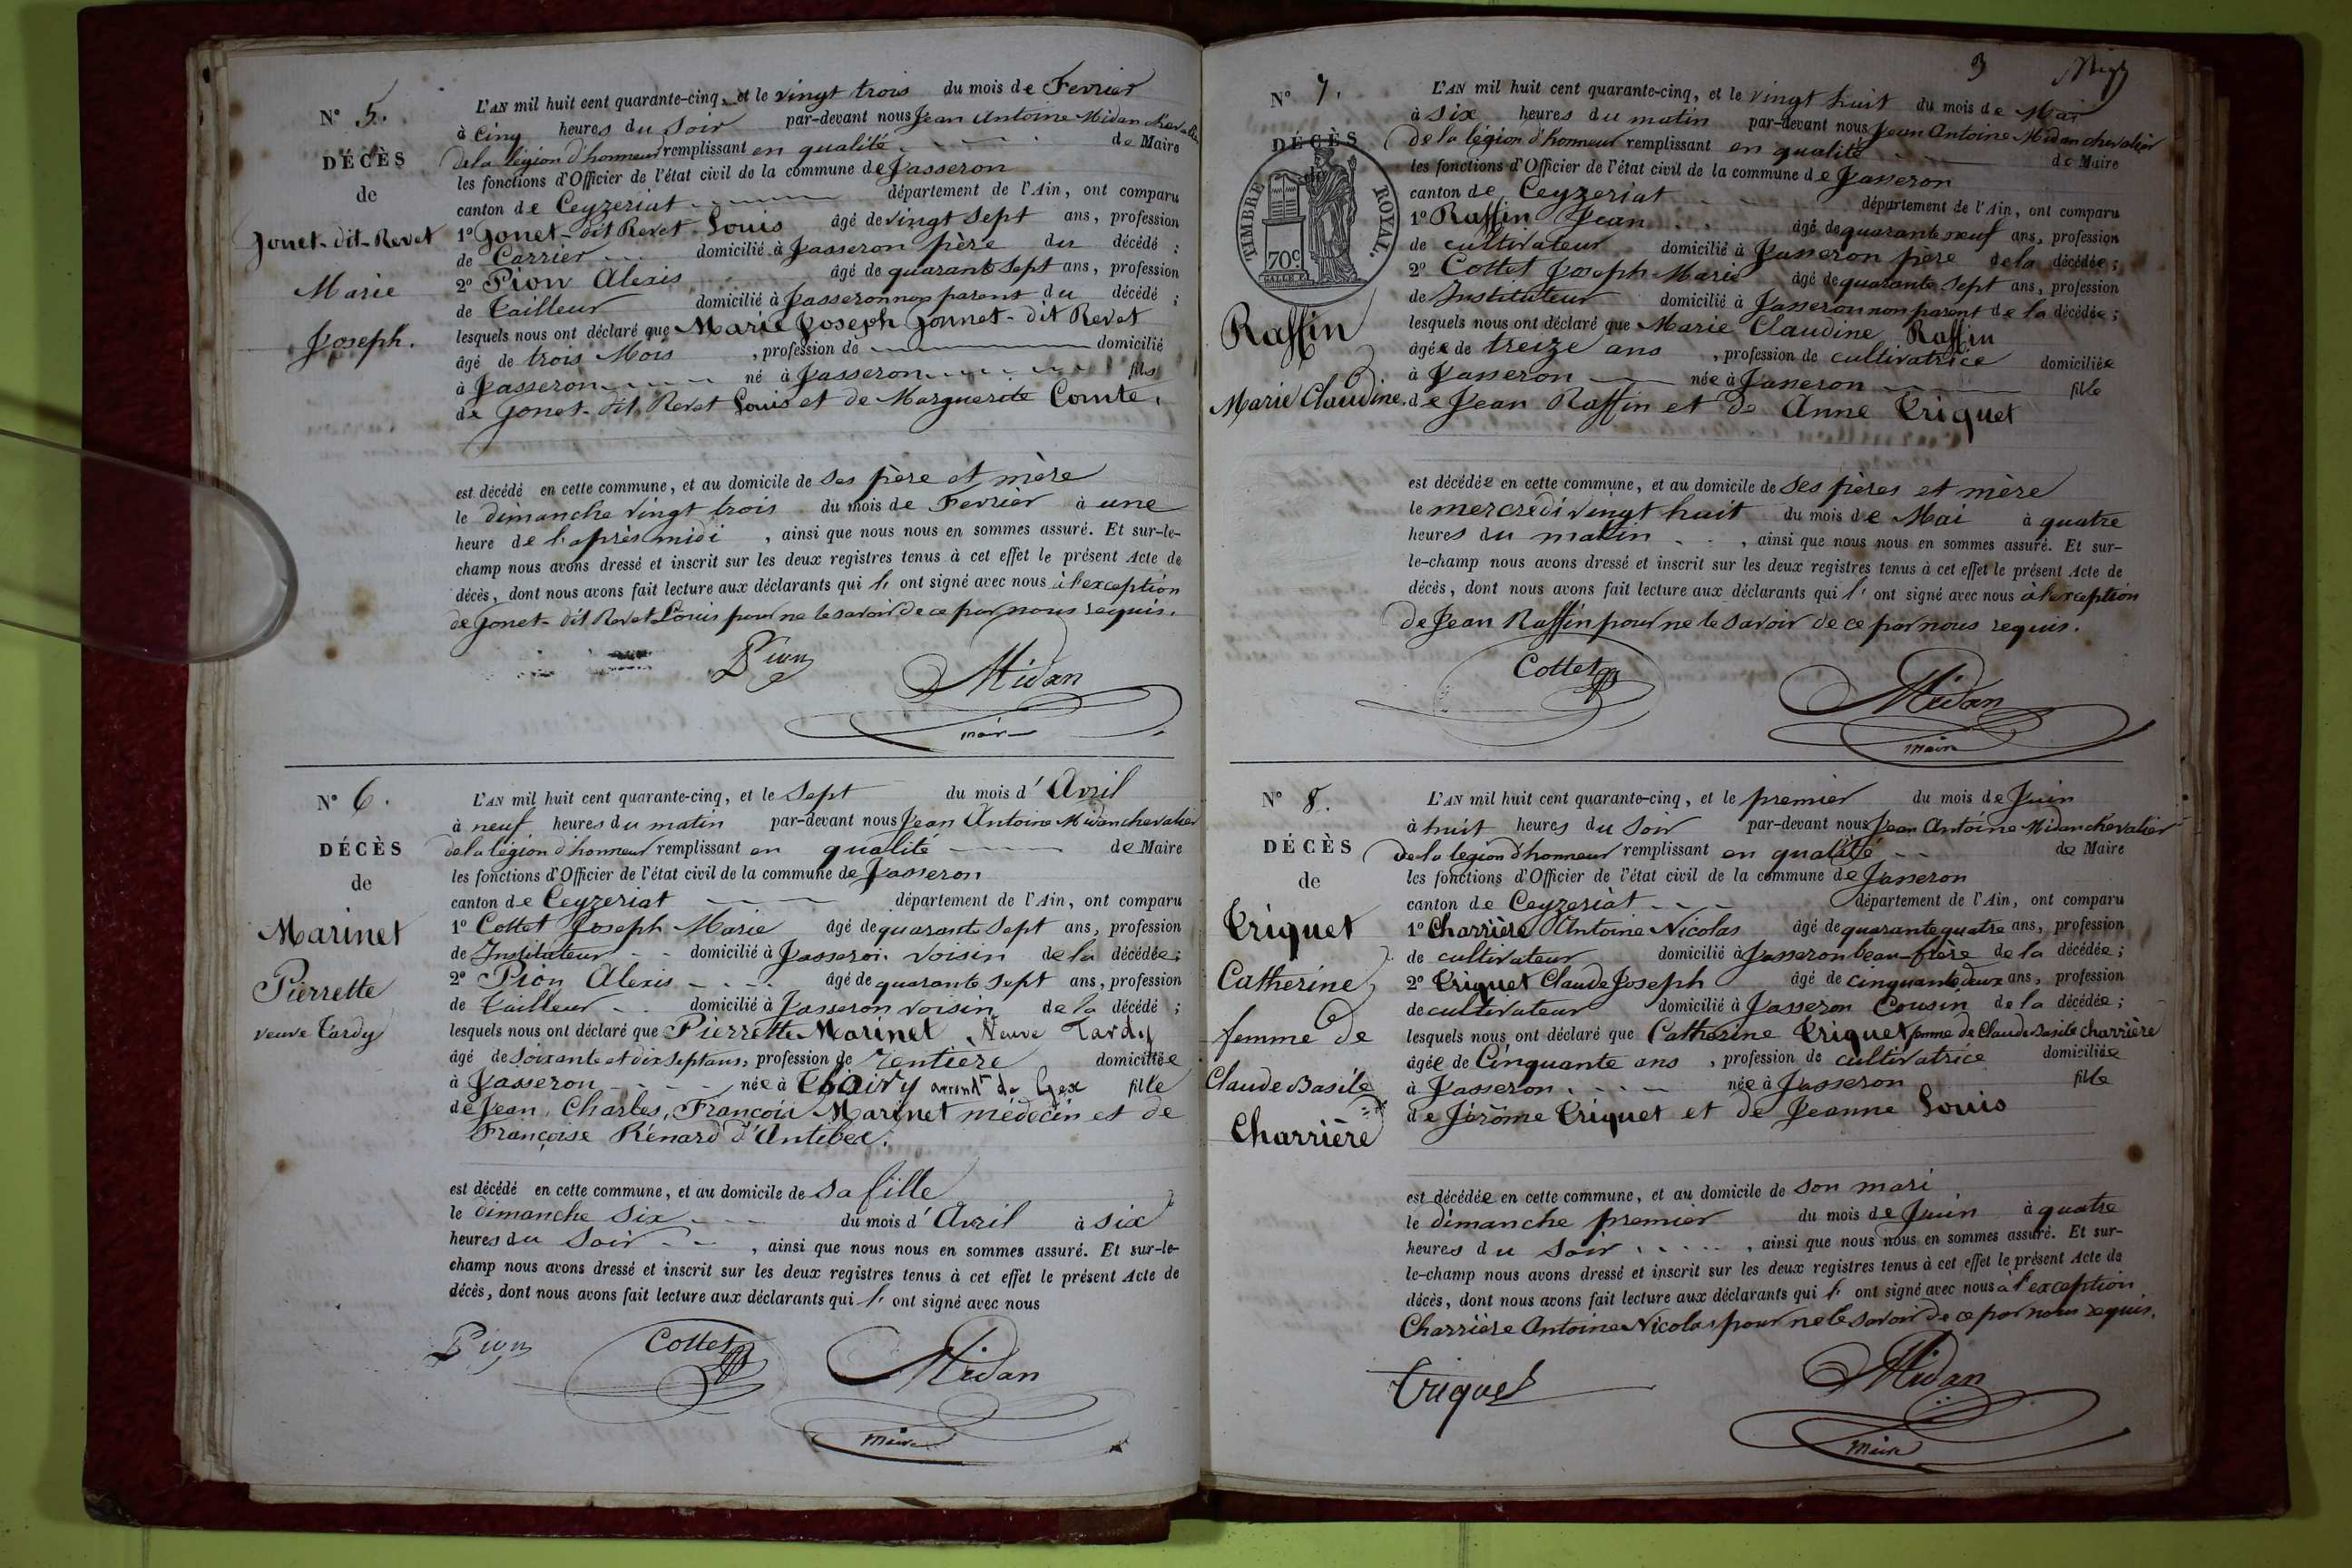 N° 5.
DÉCÈS
de
Jonet-dit-Revet
Marie
Joseph.
L'AN mil huit cent quarante-cinq, et le vingt trois du mois de Fevrier
à Cinq heures du soir par-devant nous Jean Antoine Midan chevalier
de la légion d'honneur remplissant en qualité de Maire
les fonctions d'Officier de l'état civil de la commune de Jasseron
canton de Ceyzeriat département de l'Ain, ont comparu
1° Jonet-dit Revet Louis âgé de vingt sept ans, profession
de Carrier domicilié à Jasseron père du décédé ;
2° Pion Alexis âgé de quarante sept ans, profession
de tailleur domicilié à Jasseron non parent du décédé ;
lesquels nous ont déclaré que Marie Joseph Jonnet-dit Revet
âgé de trois Mois , profession de domicilié
à Jasseron né à Jasseron fils
de Jonet-dit Revet Louis et de Marguerite Comte.
est décédé en cette commune, et au domicile de ses père et mère
le dimanche vingt trois du mois de Fevrièr à une
heure de l'après midi , ainsi que nous nous en sommes assuré. Et sur-le-
champ nous avons dressé et inscrit sur les deux registres tenus à cet effet le présent Acte de
décès, dont nous avons fait lecture aux déclarants qui l' ont signé avec nous à l'exception
de Jonet-dit Revet Louis pour ne le savoir de ce par nous requis.
Pion
Midan
maire
N° 6.
DÉCÈS
de
Marinet
Pierrette
veuve Tardy
L'AN mil huit cent quarante-cinq, et le Sept du mois d'Avril
à neuf heures du matin par-devant nous Jean Antoine Midan chevalier
de la légion d'honneur remplissant en qualité de Maire
les fonctions d'Officier de l'état civil de la commune de Jasseron
canton de Ceyzeriat département de l'Ain, ont comparu
1° Cottet Joseph Marie âgé de quarante sept ans, profession
de Instituteur domicilié à Jasseron voisin de la décédée ;
2° Pion Alexis âgé de quarante sept ans, profession
de tailleur domicilié à Jasseron voisin de la décédé ;
lesquels nous ont déclaré que Pierrette Marinet, Veuve Tardy
âgé de soixante et dix sept ans, profession de rentiere domiciliée
à Jasseron née à Thoiry arrondt de Gex fille
de Jean, Charles, François Marinet médecin et de
Françoise Rénard d'Antibex.
est décédé en cette commune, et au domicile de sa fille
le dimanche six du mois d'Avril à six
heures du soir , ainsi que nous nous en sommes assuré. Et sur-le-
champ nous avons dressé et inscrit sur les deux registres tenus à cet effet le présent Acte de
décès, dont nous avons fait lecture aux déclarants qui l' ont signé avec nous
Pion Cottet Midan
maire
3
N° 7.
DÉCÈS
TIMBRE ROYAL.
70c
Raffin
Marie Claudine.
L'AN mil huit cent quarante-cinq, et le vingt huit du mois de Mai
à six heures du matin par-devant nous Jean Antoine Midan chevalier
de la légion d'honneur remplissant en qualité de Maire
les fonctions d'Officier de l'état civil de la commune de Jasseron
canton de Ceyzeriat département de l'Ain, ont comparu
1° Raffin Jean âgé de quarante neuf ans, profession
de cultivateur domicilié à Jasseron père de la décédée ;
2° Cottet Joseph Marie âgé de quarante sept ans, profession
de Instituteur domicilié à Jasseron non parent de la décédée ;
lesquels nous ont déclaré que Marie Claudine Raffin
âgée de treize ans , profession de cultivatrice domiciliée
à Jasseron née à Jasseron fille
de Jean Raffin et de Anne Triquet
est décédée en cette commune, et au domicile de ses pères et mère
le mercredi vingt huit du mois de Mai à quatre
heures du matin , ainsi que nous nous en sommes assuré. Et sur-
le-champ nous avons dressé et inscrit sur les deux registres tenus à cet effet le présent Acte de
décès, dont nous avons fait lecture aux déclarants qui l' ont signé avec nous à l'exception
de Jean Raffin pour ne le savoir de ce par nous requis.
Cottet
Midan
maire
N° 8.
DÉCÈS
de
Triquet
Catherine
femme de
Claude Basile
Charrière
L'AN mil huit cent quarante-cinq, et le premier du mois de Juin
à huit heures du soir par-devant nous Jean Antoine Midan chevalier
de la légion d'honneur remplissant en qualité de Maire
les fonctions d'Officier de l'état civil de la commune de Jasseron
canton de Ceyzeriat département de l'Ain, ont comparu
1° Charrière Antoine Nicolas âgé de quarante quatre ans, profession
de cultivateur domicilié à Jasseron beau-frère de la décédée ;
2° Triquet Claude Joseph âgé de cinquante deux ans, profession
de cultivateur domicilié à Jasseron Cousin de la décédée ;
lesquels nous ont déclaré que Catherine Triquet femme de Claude Basile Charrière
âgée de Cinquante ans , profession de cultivatrice domiciliée
à Jasseron née à Jasseron fille
de Jérôme Triquet et de Jeanne Louis
est décédée en cette commune, et au domicile de son mari
le dimanche premier du mois de Juin à quatre
heures du soir , ainsi que nous nous en sommes assuré. Et sur-
le-champ nous avons dressé et inscrit sur les deux registres tenus à cet effet le présent Acte de
décès, dont nous avons fait lecture aux déclarants qui l' ont signé avec nous à l'exception
Charrière Antoine Nicolas pour ne le savoir de ce par nous requis.
Triquet
Midan
maire